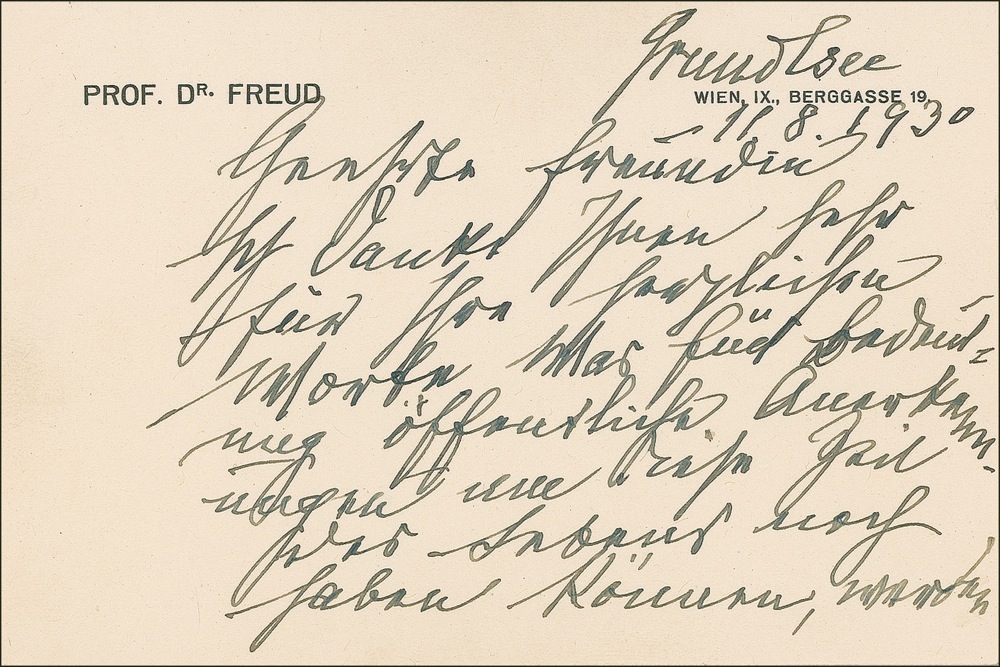 Grundlsee
PROF. DR. FREUD
WIEN, IX., BERGGASSE 19.
11. 8. 1930
Geehrte Freundin
Ich danke Ihnen sehr
für Ihre herzlichen
Worte. Was für Bedeut-
ung öffentliche Anerkenn-
ungen um diese Zeit
des Lebens noch
haben können, werden